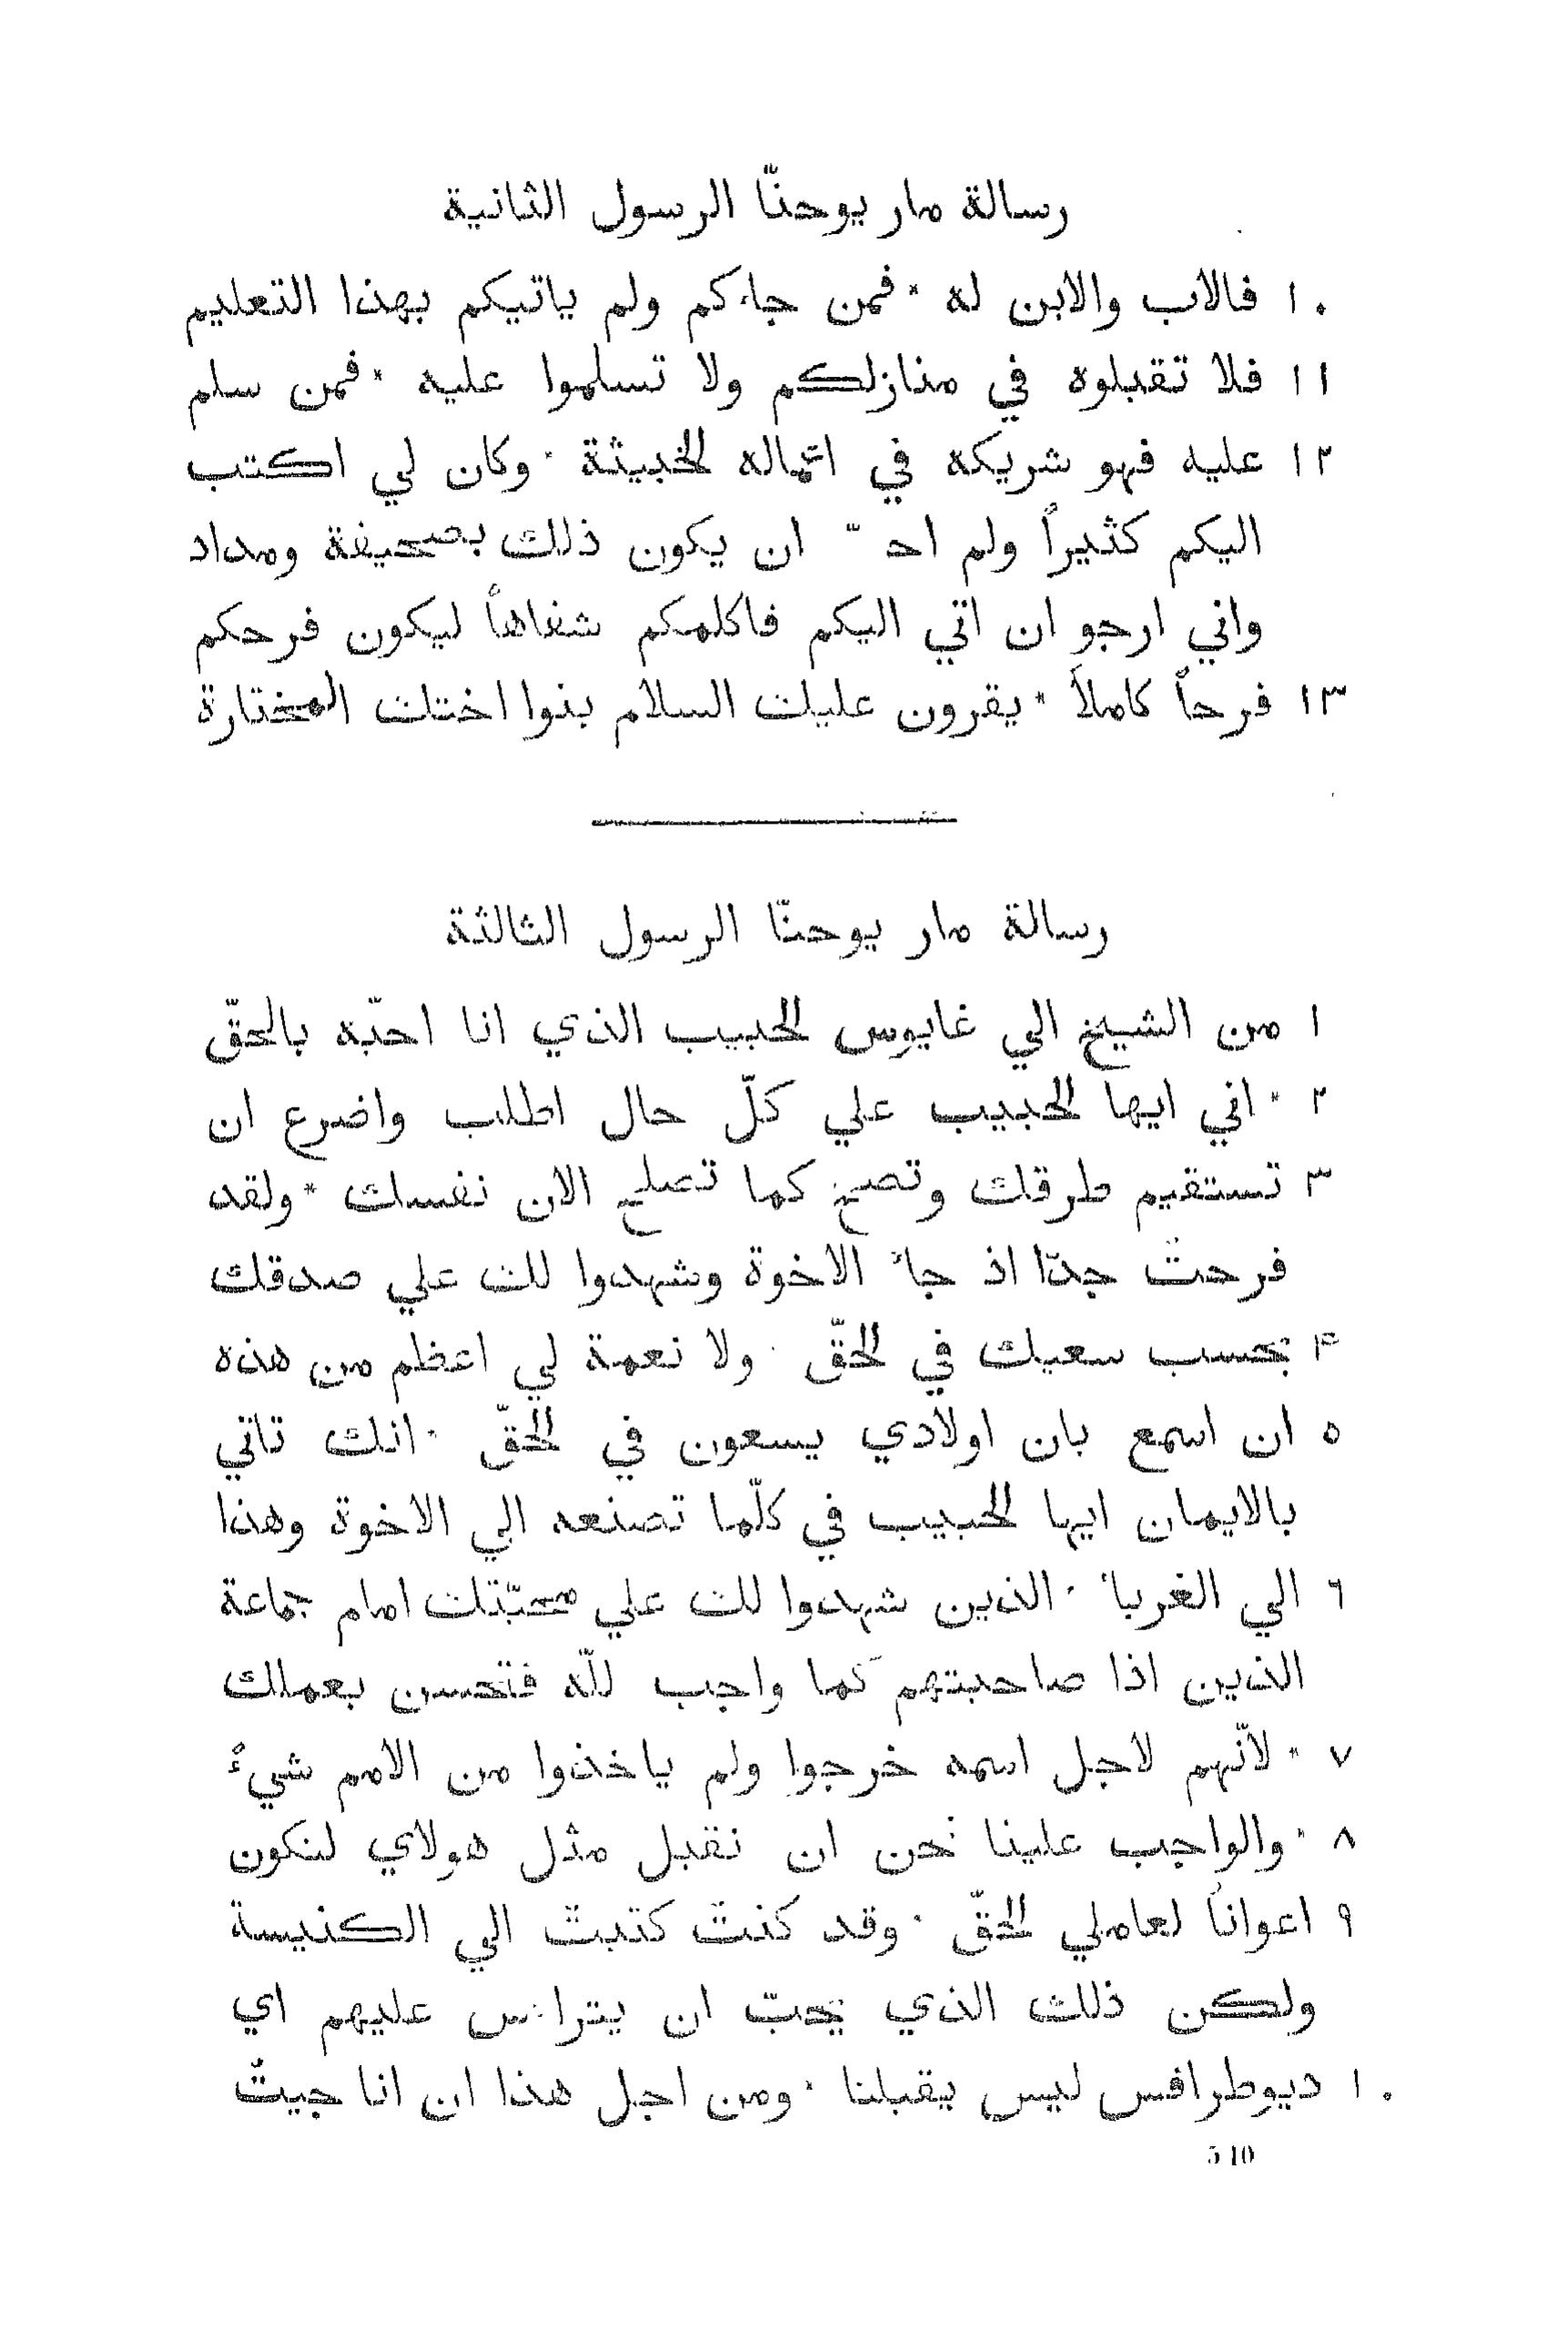 رسالة مار يوحنّا الرسول الثانية
١٠ فالاب والابن له * فمن جاءكم ولم ياتيكم بهذا التعليم
١١ فلا تقبلوه في منازلكم ولا تسلموا عليه * فمن سلم
١٢ عليه فهو شريكه في اعماله الخبيثة * وكان لي اكتب
اليكم كثيراً ولم ان يكون ذلك بصحيفة ومداد
واني ارجو ان اتي اليكم فاكلمكم شفاهاً ليكون فرحكم
١٣ فرحاً كاملاً * يقرون عليك السلام بنوا اختك المختارة
رسالة مار يوحنّا الرسول الثالثة
١ من الشيخ الي غايوس الحبيب الذي انا احبّه بالحقّ
٢ * اني ايها الحبيب علي كلّ حال اطلب واضرع ان
٣ تستقيم طرقك وتصح كما تصلح الان نفسك * ولقد
فرحتُ جدّا اذ جاءَ الاخوة وشهدوا لك علي صدقك
۴ بحسب سعيك في الحقّ * ولا نعمة لي اعظم من هذه
٥ ان اسمع بان اولادي يسعون في الحقّ * انك تاتي
بالايمان ايها الحبيب في كلّما تصنعه الي الاخوة وهذا
٦ الي الغرباء * الذين شهدوا لك علي محبّتك امام جماعة
الذين اذا صاحبتهم كما واجب للّه فتحسن بعملك
٧ * لانّهم لاجل اسمه خرجوا ولم ياخذوا من الامم شيءً
٨ * والواجب علينا نحن ان نقبل مثل هولاي لنكون
٩ اعواناً لعاملي الحقّ * وقد كنتُ كتبتُ الي الكنيسة
ولكن ذلك الذي يحبّ ان يتراءس عليهم اي
١٠ ديوطرافس ليس يقبلنا * ومن اجل هذا ان انا جيتُ
540